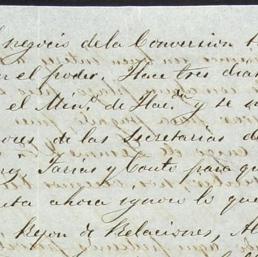 negocio de la Conversion
en el poder. Hace tres dias
el Minº. de Hacda. y se
ores de las Secretarias d
Farias y Couto para qu
ta ahora ignoro lo que
Rejon de Relaciones, Al